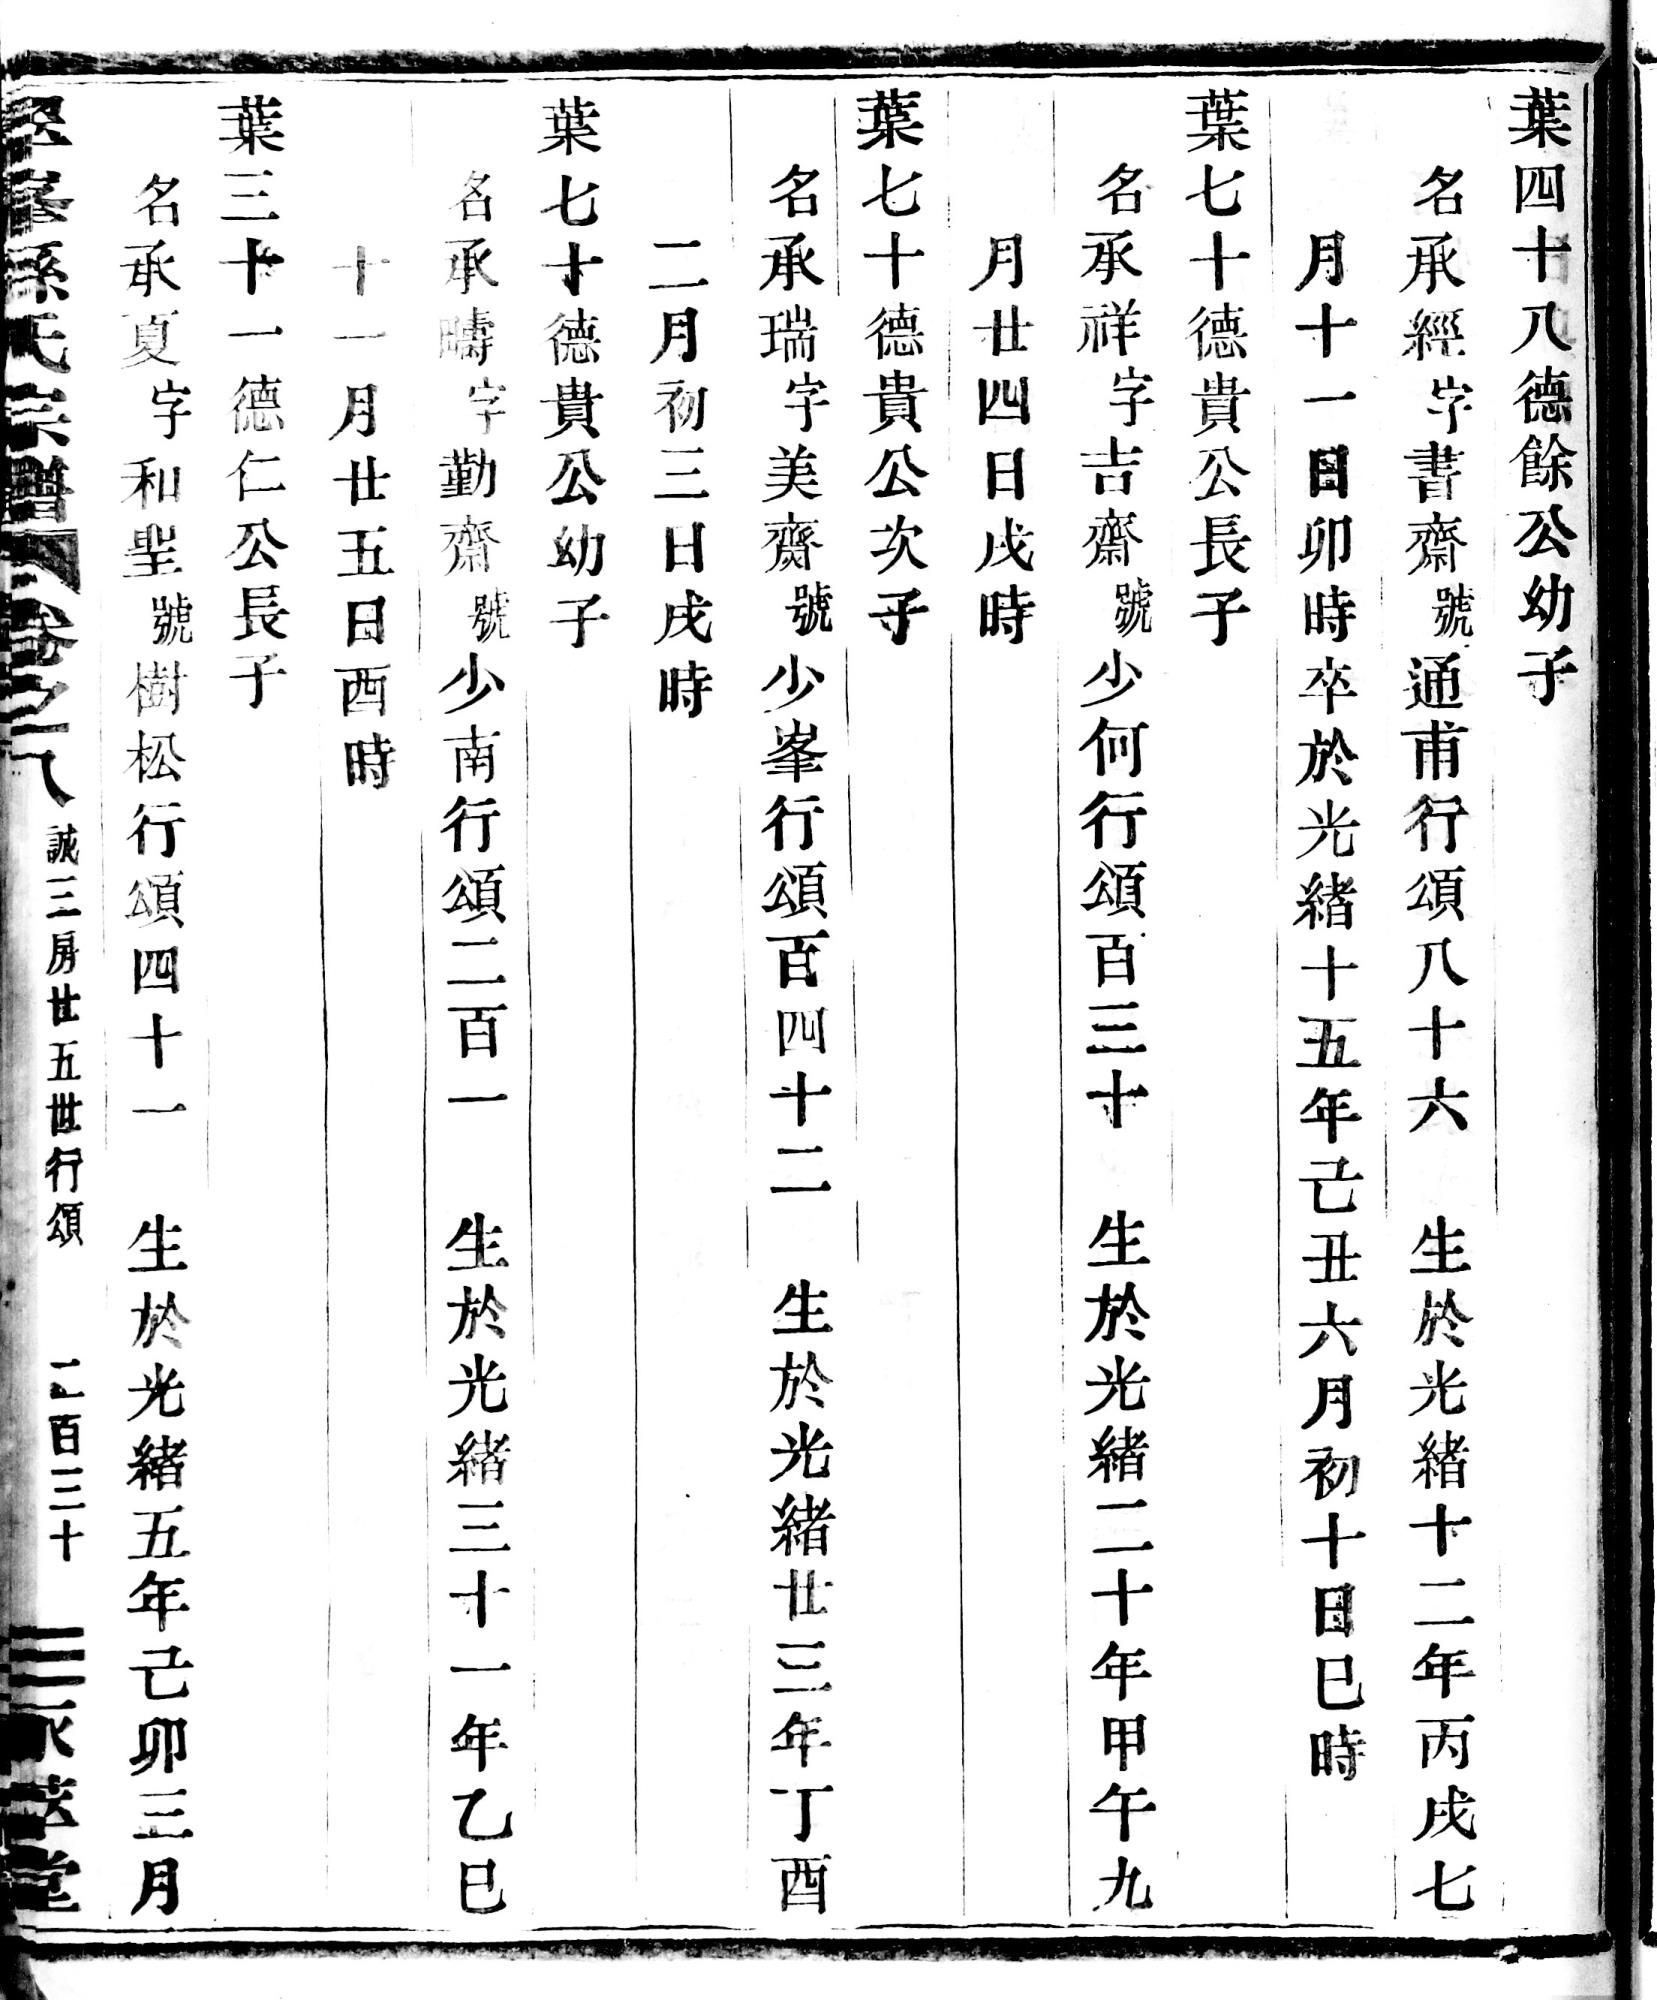 葉四十八德餘公幼子
名承經字書齋號通甫行頌八十六　生於光緒十二年丙戌七
月十一日卯時卒於光緒十五年己丑六月初十日巳時
葉七十德貴公長子
名承祥字吉齋號少何行頌百三十　生於光緒二十年甲午九
月廿四日戌時
葉七十德貴公次子
名承瑞字美齋號少峯行頌百四十二　生於光緒廿三年丁酉
二月初三日戌時
葉七十德貴公幼子
名承疇字勤齋號少南行頌二百一　生於光緒三十一年乙巳
十一月廿五日酉時
葉三十一德仁公長子
名承夏字和聖號樹松行頌四十一　生於光緒五年己卯三月
孫氏宗譜　卷之八　誠三房廿五世行頌　二百三十　堂